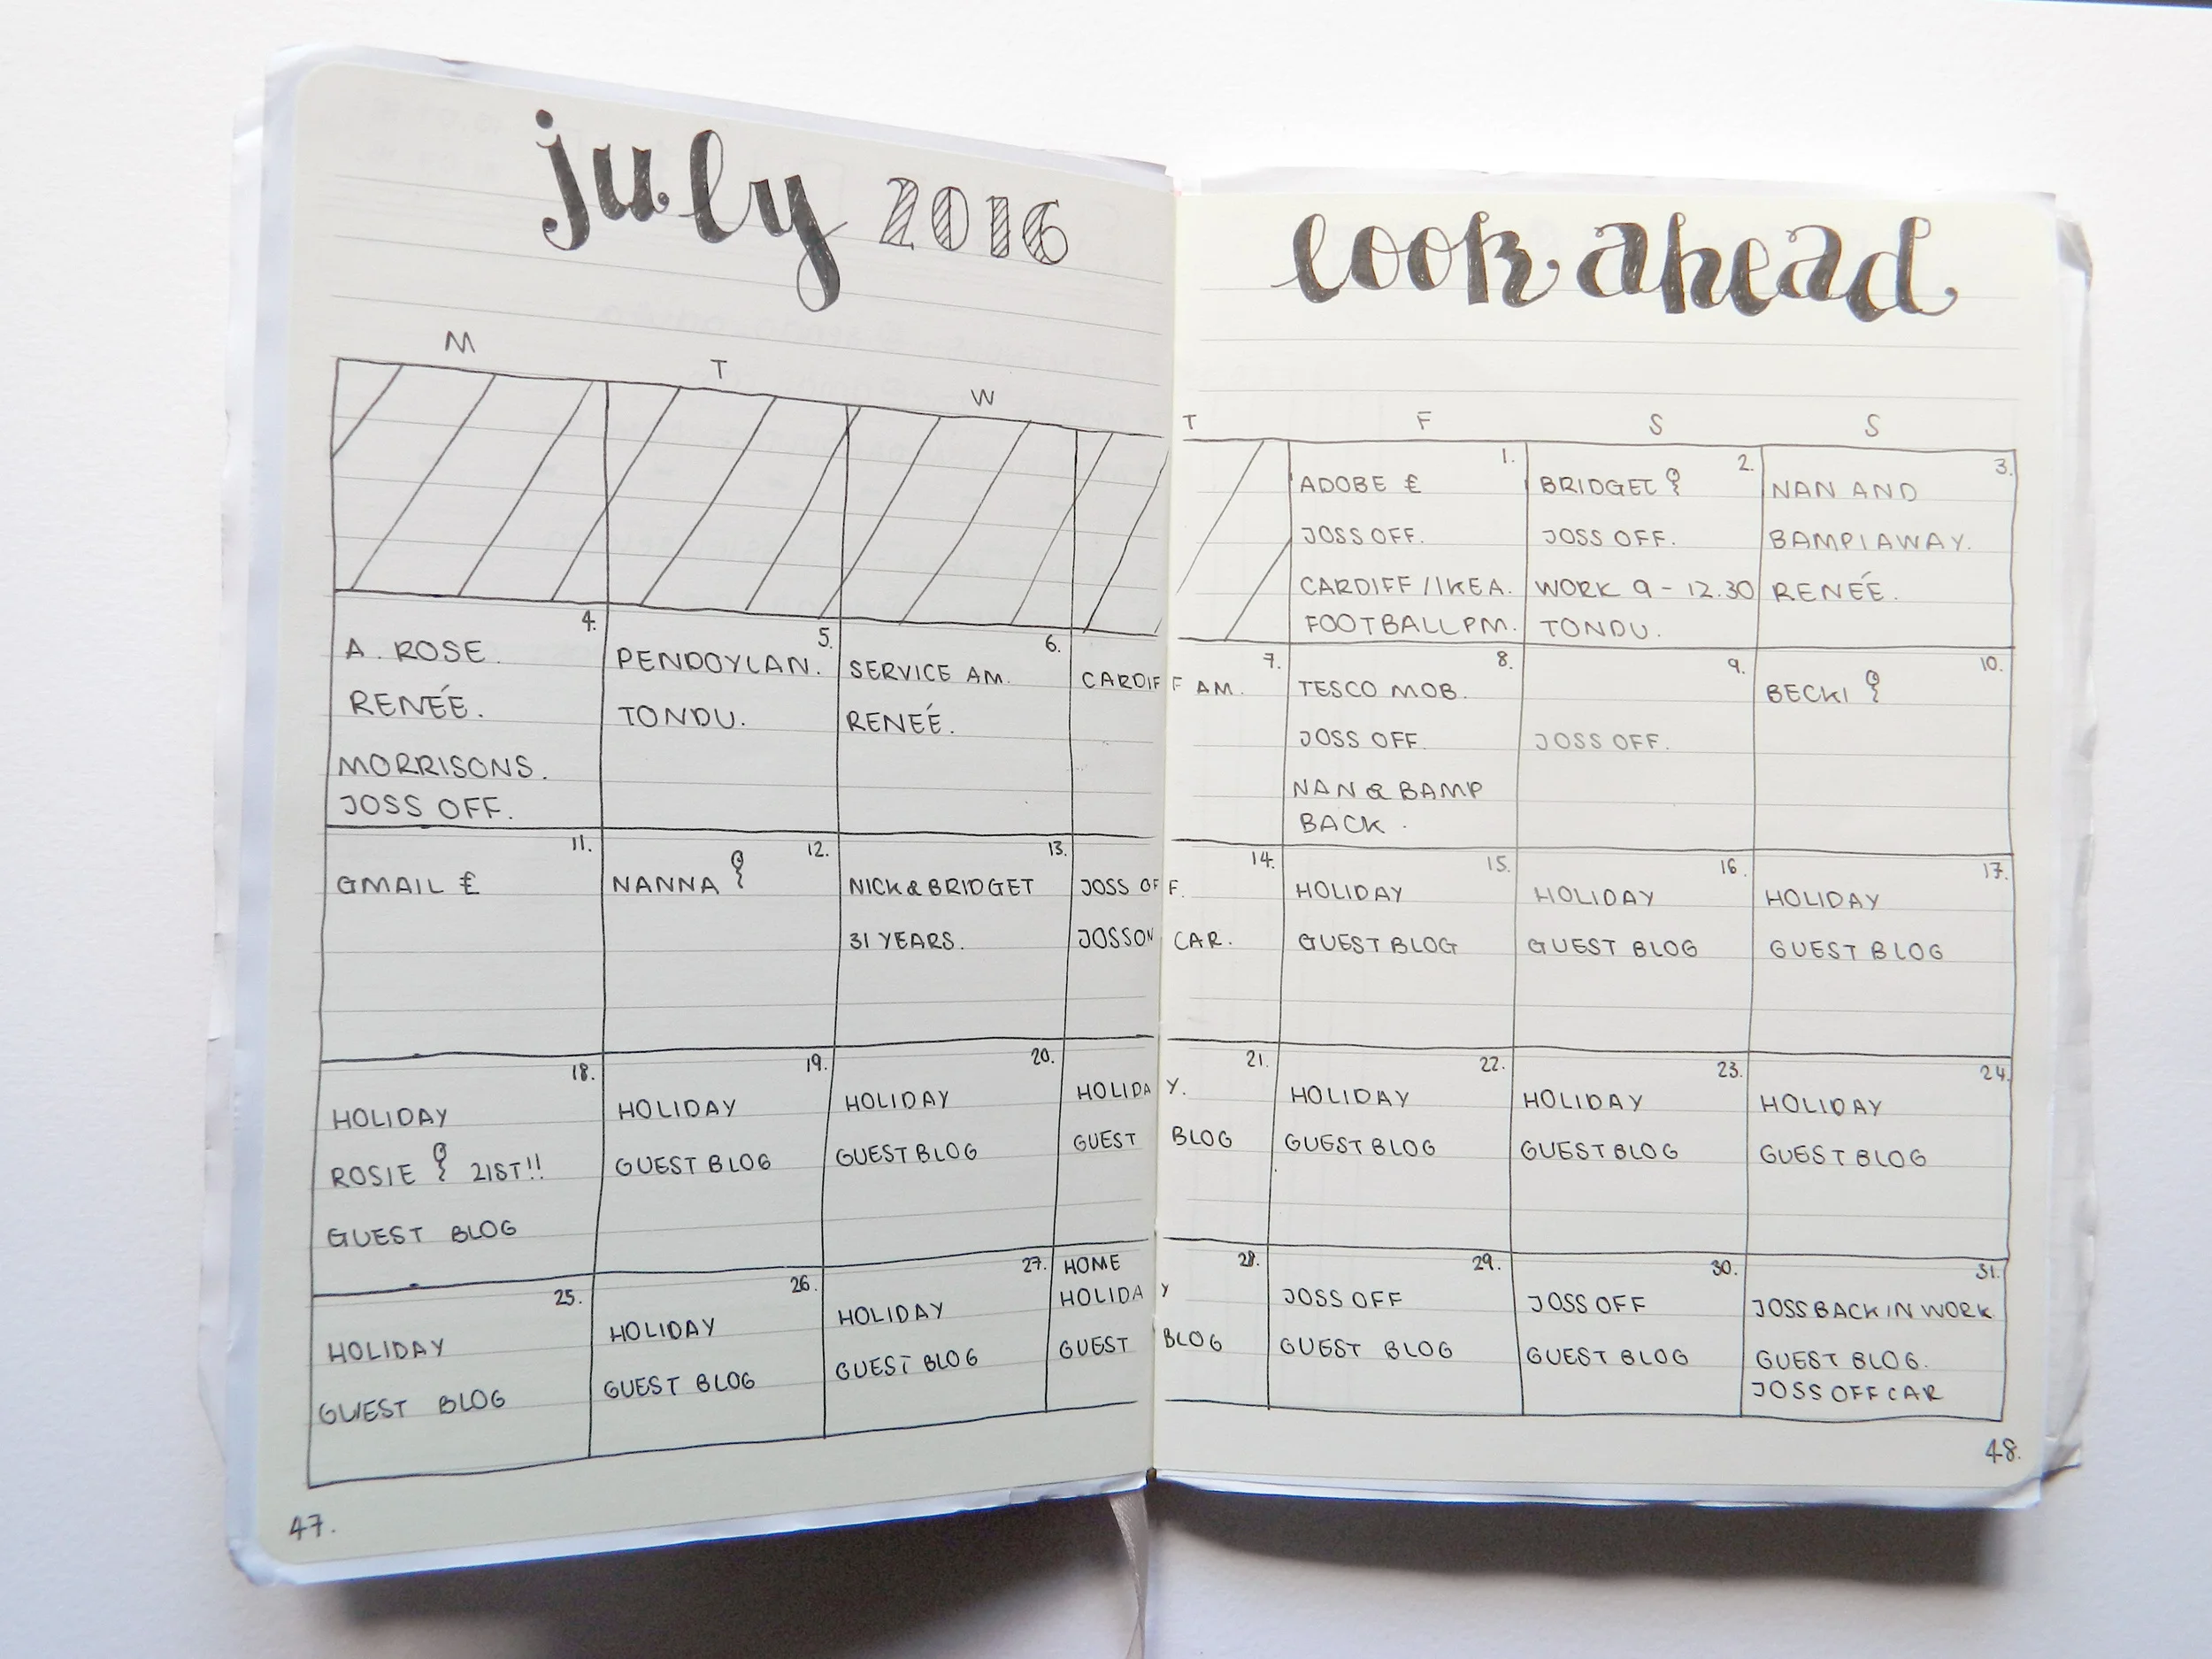 july 2016
look ahead
M T W T F S S
1.
ADOBE £
JOSS OFF.
CARDIFF / IKEA.
FOOTBALL PM.
2.
BRIDGET
JOSS OFF.
WORK 9 - 12.30
TONDU.
3.
NAN AND
BAMPI AWAY.
RENEÉ.
4.
A. ROSE.
RENEÉ.
MORRISONS.
JOSS OFF.
5.
PENDOYLAN.
TONDU.
6.
SERVICE AM.
RENEÉ.
7.
CARDIFF AM.
8.
TESCO MOB.
JOSS OFF.
NAN & BAMP
BACK.
9.
JOSS OFF.
10.
BECKI
11.
GMAIL £
12.
NANNA
13.
NICK & BRIDGET
31 YEARS.
14.
JOSS OFF.
JOSS ON CAR.
15.
HOLIDAY
GUEST BLOG
16.
HOLIDAY
GUEST BLOG
17.
HOLIDAY
GUEST BLOG
18.
HOLIDAY
ROSIE 21ST!!
GUEST BLOG
19.
HOLIDAY
GUEST BLOG
20.
HOLIDAY
GUEST BLOG
21.
HOLIDAY.
GUEST BLOG
22.
HOLIDAY
GUEST BLOG
23.
HOLIDAY
GUEST BLOG
24.
HOLIDAY
GUEST BLOG
25.
HOLIDAY
GUEST BLOG
26.
HOLIDAY
GUEST BLOG
27.
HOLIDAY
GUEST BLOG
28.
HOME
HOLIDAY
GUEST BLOG
29.
JOSS OFF
GUEST BLOG
30.
JOSS OFF
GUEST BLOG
31.
JOSS BACK IN WORK
GUEST BLOG.
JOSS OFF CAR
47.
48.